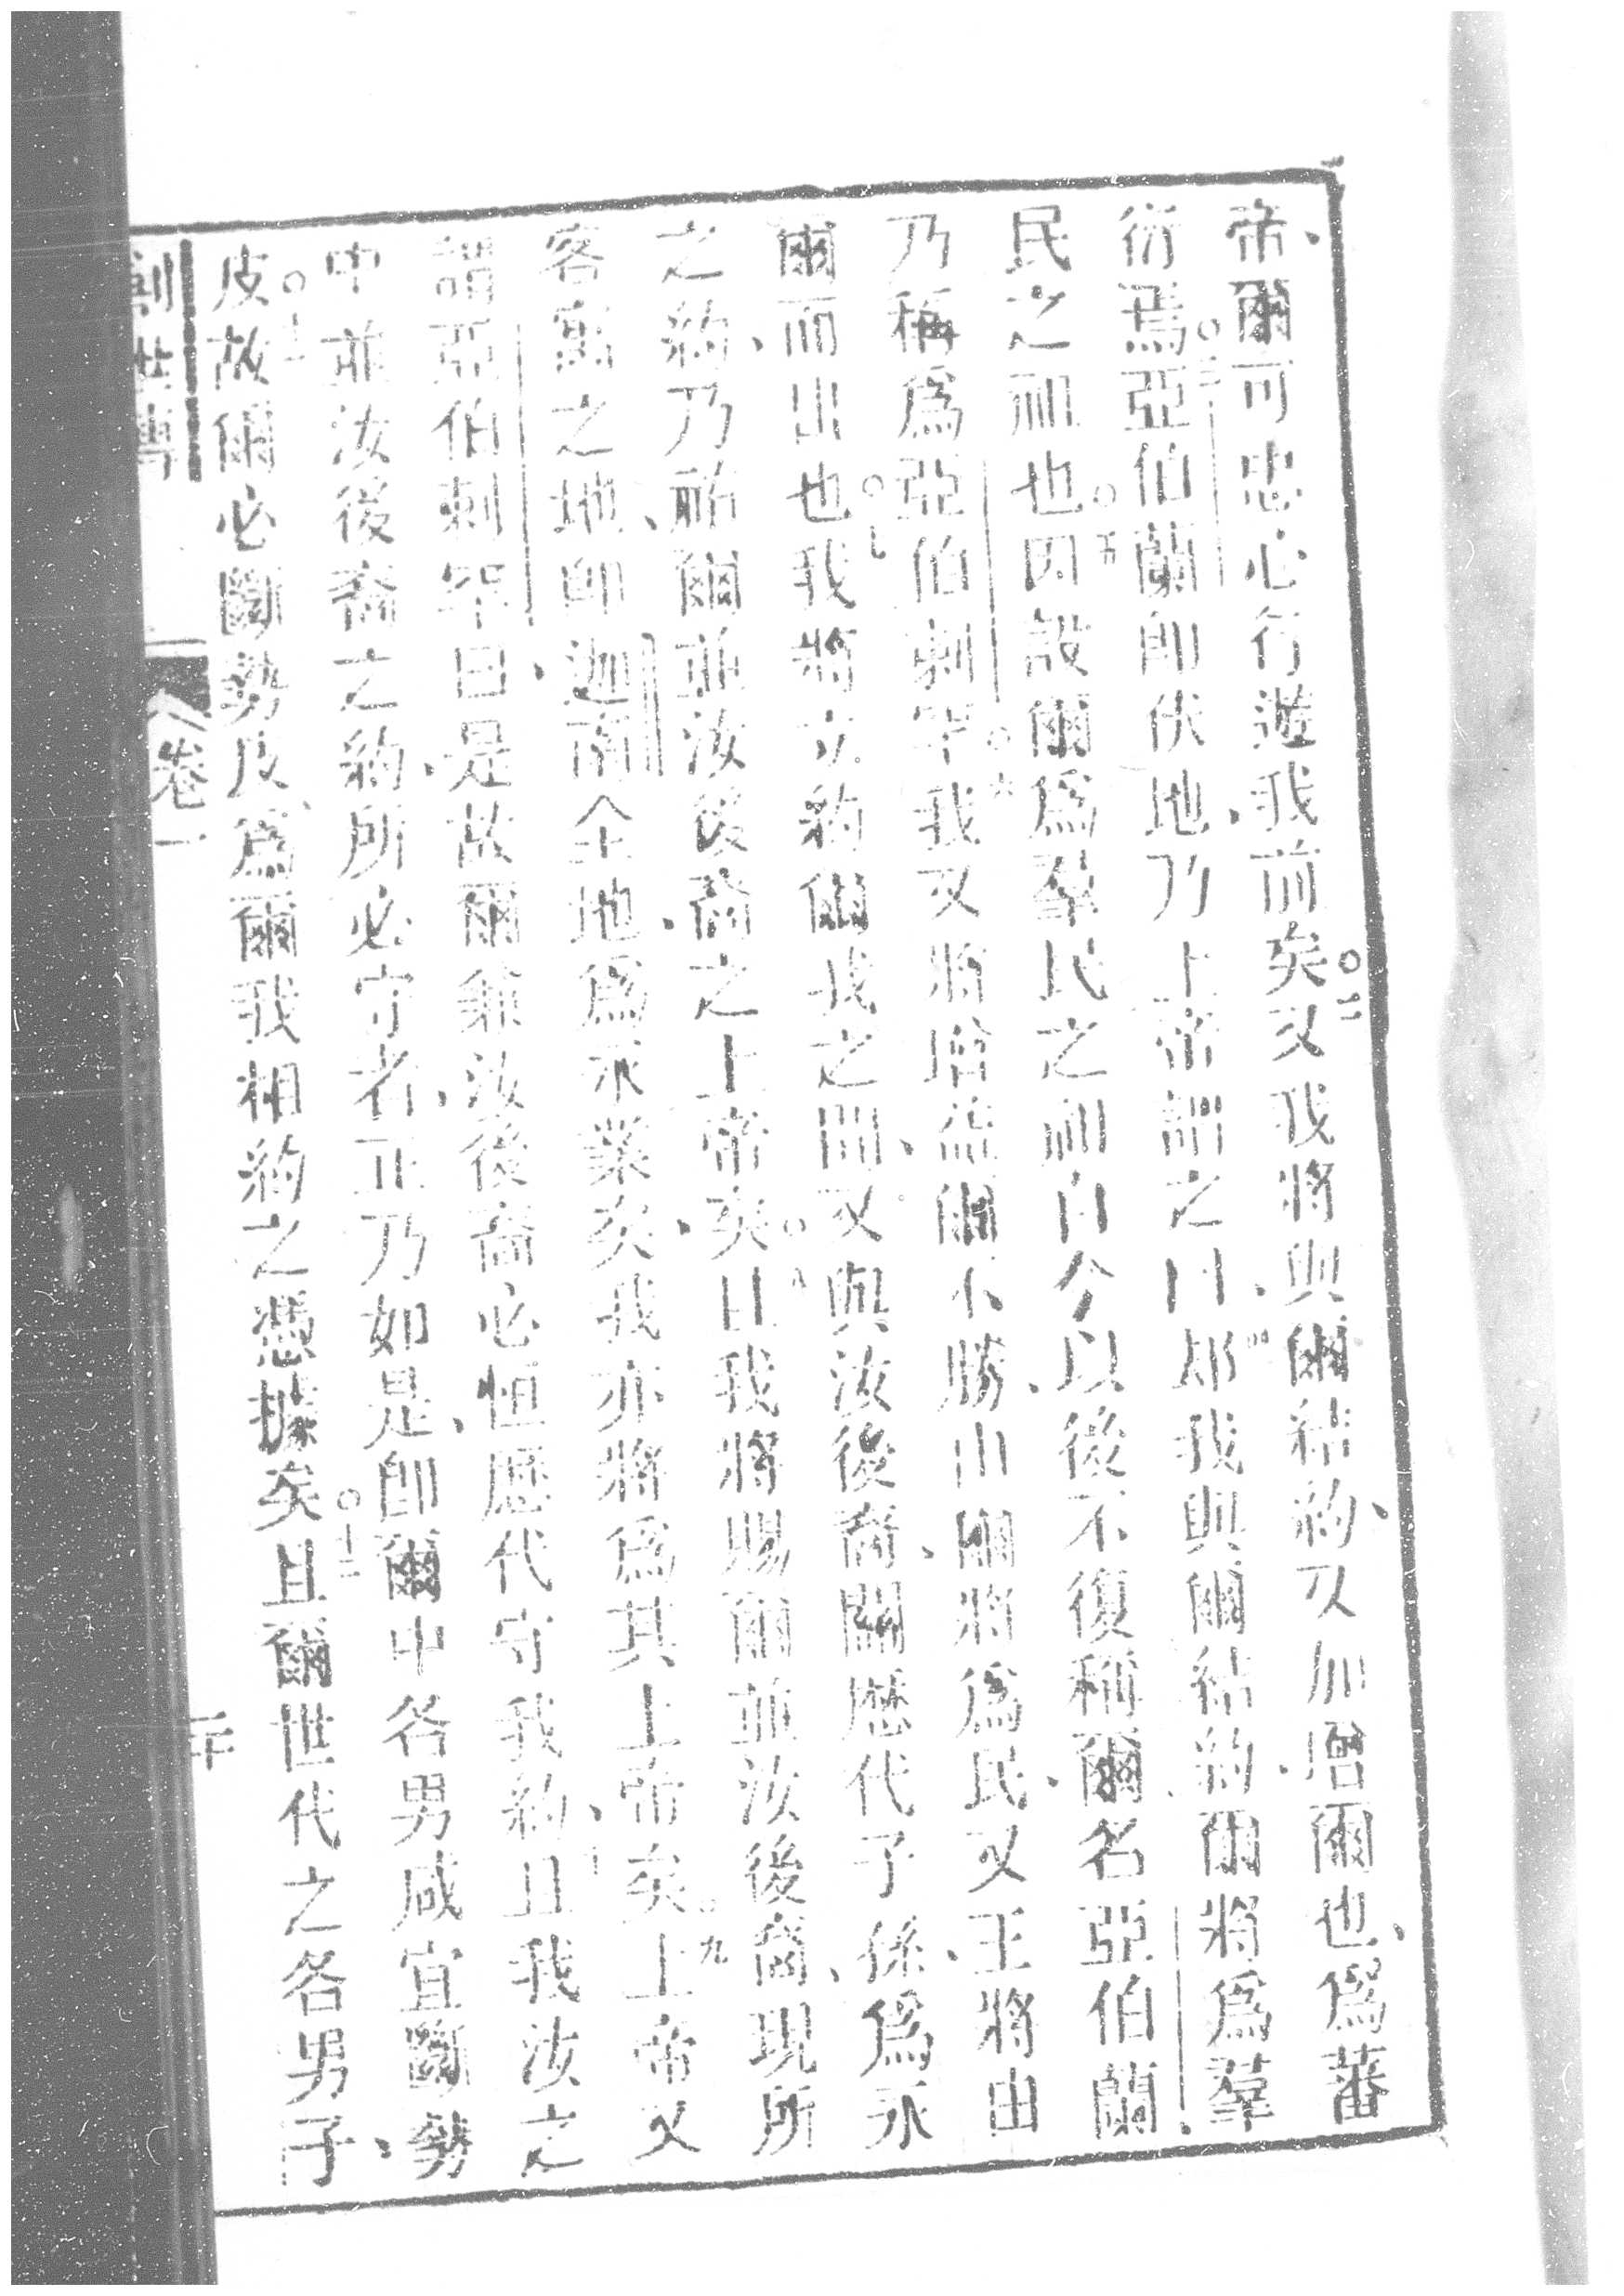 帝、爾可忠心行遊我前矣○二又我將與爾結約、又加增爾也、爲蕃
衍焉○三亞伯蘭即伏地乃上帝謂之曰、四却我與爾結約、爾將爲羣
民之祖也○五因設爾爲羣民之祖自今以後、不復稱爾名亞伯蘭、
乃稱爲亞伯剌罕○六我又將增益爾不勝出爾將爲民、又王將由
爾而出也○七我將立約爾我之間、又與汝後裔、關歷代子孫、爲永
之約、乃祐爾並汝後裔之上帝矣○八且我將賜爾並汝後裔、現所
客寓之地、即迦南全地、爲永業矣、我亦將爲其上帝矣○九上帝又
謂亞伯剌罕曰、是故爾兼汝後裔必恒歷代守我約、十且我汝之
中並汝後裔之約、所必守者、正乃如是、即爾中各男咸宜斷勢
皮○十一故爾必斷勢皮、爲爾我相約之憑據矣○十二且爾世代之各男子、
創世傳 卷一 二十